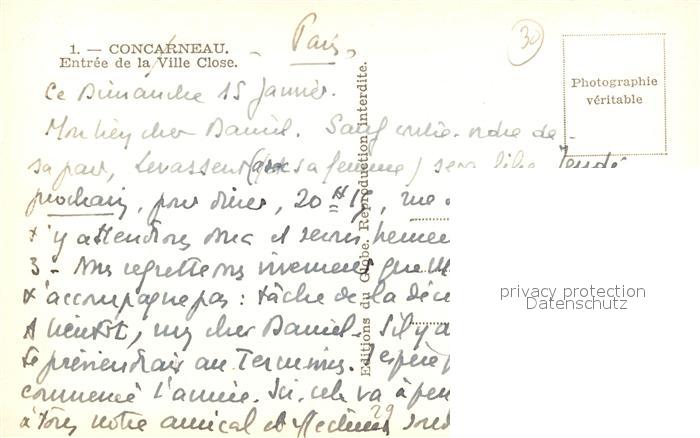 1. — CONCARNEAU.
Entrée de la Ville Close.
Paris,
30
Photographie
véritable
Ce Dimanche 15 Janvier.
Mon bien cher Daniel. Sauf contre-ordre de
sa part, Levasseur (sa femme) sera libre Jeudi
prochain, pour dîner, 20 h 15, rue
t'y attendrons donc et serons heureux
3 - Nous regrettons vivement que
t'accompagne pas : tâche de la
A bientôt, mon cher Daniel. S'il y a
te préviendrais au Terminus. J'espère
commencé l'année. Ici, cela va à peu
à tous notre amical et affectueux souvenir
29
Editions du Globe. Reproduction interdite.
privacy protection
Datenschutz